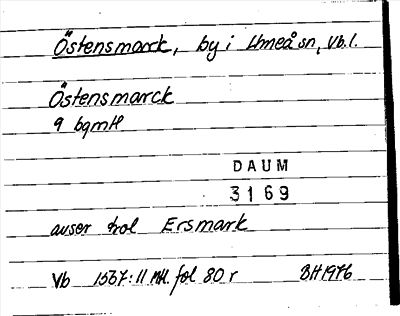 Östensmarck, by i Umeå sn, Vb.l.
Östensmarck
9 bgmtl
DAUM
3169
auser trol Ersmark
Vb 1567:11 mtl. fol 80 r BH 1976